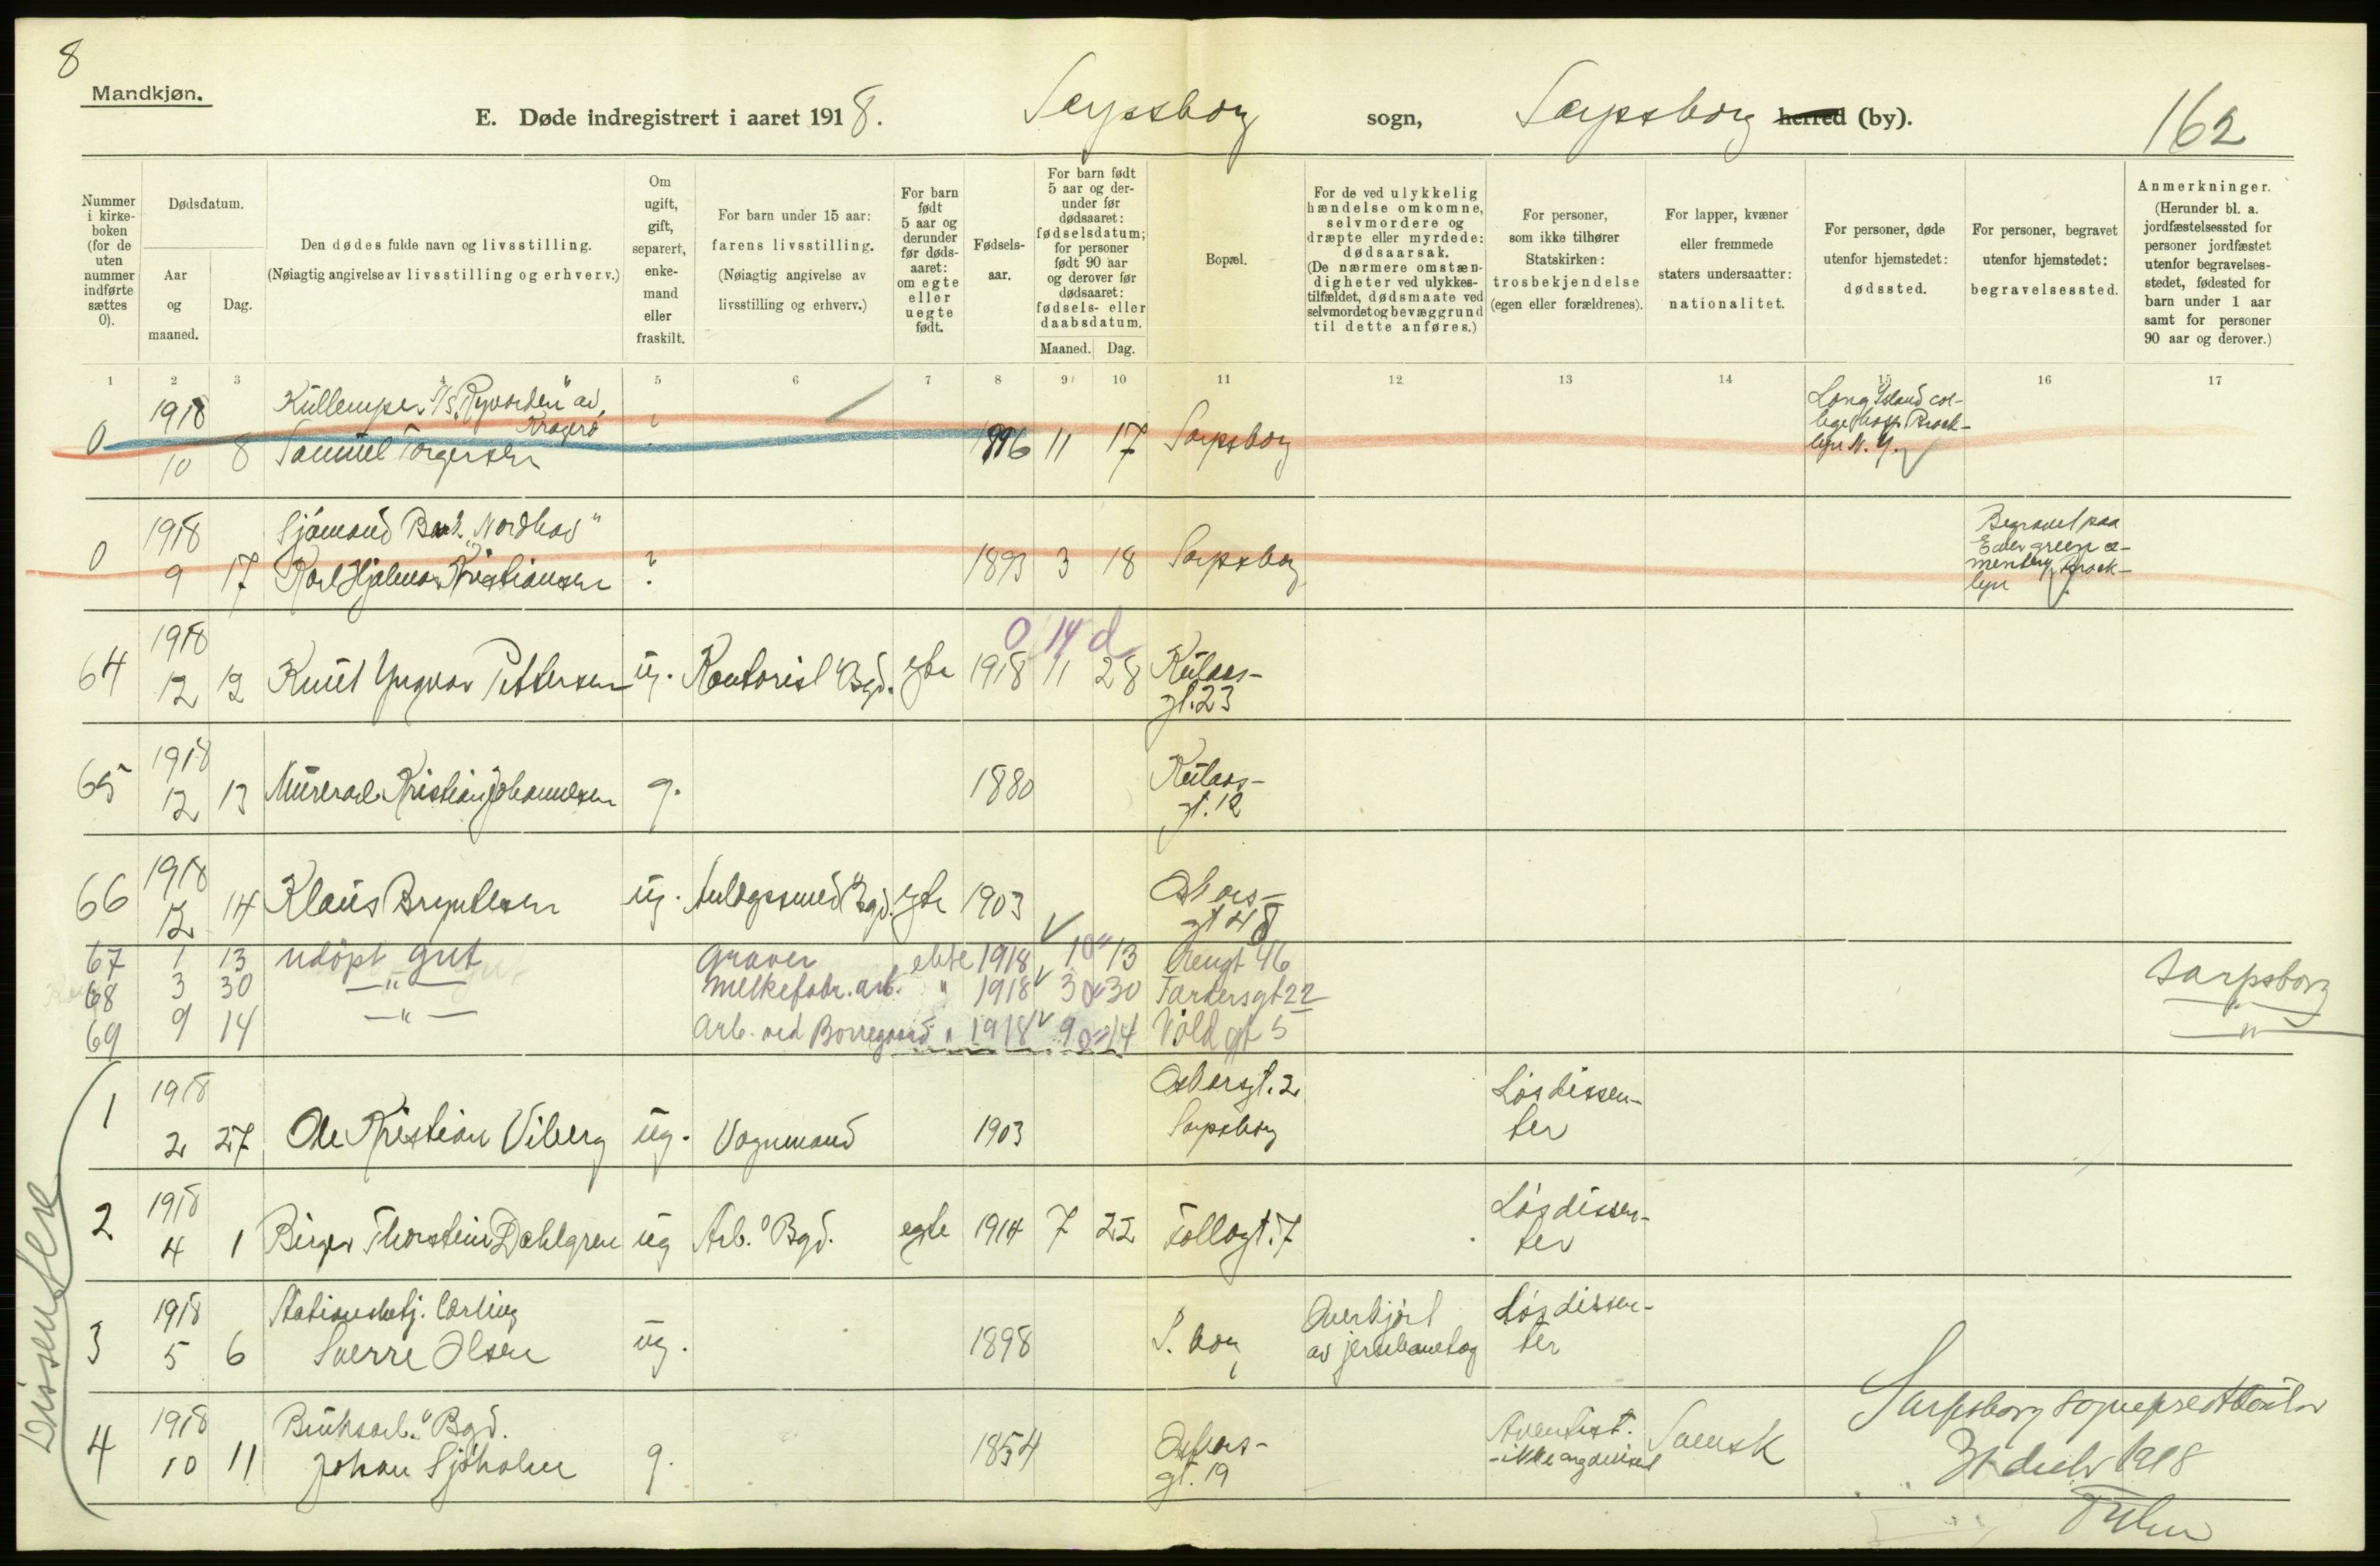 8
Mandkjøn.
E. Døde indregistrert i aaret 1918. Sarpsborg sogn, Sarpsborg herred (by).
162
Nummer i kirkeboken (for de uten nummer indførte sættes 0).
Dødsdatum.
Aar og maaned.
Dag.
Den dødes fulde navn og livsstilling.
(Nøiagtig angivelse av livsstilling og erhverv.)
Om ugift, gift, separert, enkemand eller fraskilt.
For barn under 15 aar: farens livsstilling.
(Nøiagtig angivelse av livsstilling og erhverv.)
For barn født 5 aar og derunder før dødsaaret: om egte eller uegte født.
Fødselsaar.
For barn født 5 aar og derunder før dødsaaret: fødselsdatum; for personer født 90 aar og derover før dødsaaret: fødsels- eller daabsdatum.
Maaned. Dag.
Bopæl.
For de ved ulykkelig hændelse omkomne, selvmordere og dræpte eller myrdede: dødsaarsak.
(De nærmere omstændigheter ved ulykkestilfældet, dødsmaate ved selvmordet og bevæggrund til dette anføres.)
For personer, som ikke tilhører Statskirken: trosbekjendelse (egen eller forældrenes).
For lapper, kvæner eller fremmede staters undersaatter: nationalitet.
For personer, døde utenfor hjemstedet: dødssted.
For personer, begravet utenfor hjemstedet: begravelsessted.
Anmerkninger.
(Herunder bl. a. jordfæstelsessted for personer jordfæstet utenfor begravelsesstedet, fødested for barn under 1 aar samt for personer 90 aar og derover.)
1 2 3 4 5 6 7 8 9 10 11 12 13 14 15 16 17
0 1918 10 8 Kullemper S/S "Ryvarden" av Kragerø
Samuel Torgersen ? 1896 11 17 Sarpsborg Long Island college hosp. Brooklyn N.Y.
0 1918 9 17 Sjømand Bark "Nordhav"
Karl Hjalmar Kristiansen ? 1893 3 18 Sarpsborg Begravet paa Evergreen cementery, Brooklyn
0 14 d
64 1918 12 12 Knut Yngvar Pettersen ug. Kontorist Bgd. egte 1918 11 28 Kulaasgt. 23
65 1918 12 13 Murerarb. Kristian Johannesen g. 1880 Kulaasgt. 12
66 1918 12 14 Klaus Bryntesen ug. Anlægssmed Bgd. egte 1903 Oskarsgt 48
67 1 13 udöpt gut Graver ekte 1918 1 13 46
68 3 30 —"— Melkefabr. arb. " 1918 3 30 22 Sarpsborg
69 9 14 —"— Arb. ved Borregaard " 1918 9 14 Voldgt 5 —"—
Dissentere
1 1918 2 27 Ole Kristian Viberg ug. Vognmand 1903 Oskarsgt. 2 Sarpsborg Løsdissenter
2 1918 4 1 Birger Thorstein Dahlgren ug Arb. Bgd. egte 1914 7 22 Tollogt. 7 Løsdissenter
3 1918 5 6 Stationsbetj. lærling
Sverre Olsen ug. 1898 S.borg Overkjørt av jernbanetog Løsdissenter
4 1918 10 11 Bruksarb. Bgd.
Johan Sjöholm g. 1854 Oskarsgt. 19 Aventist. Svensk
Sarpsborg sogneprestkontor
31 decbr 1918